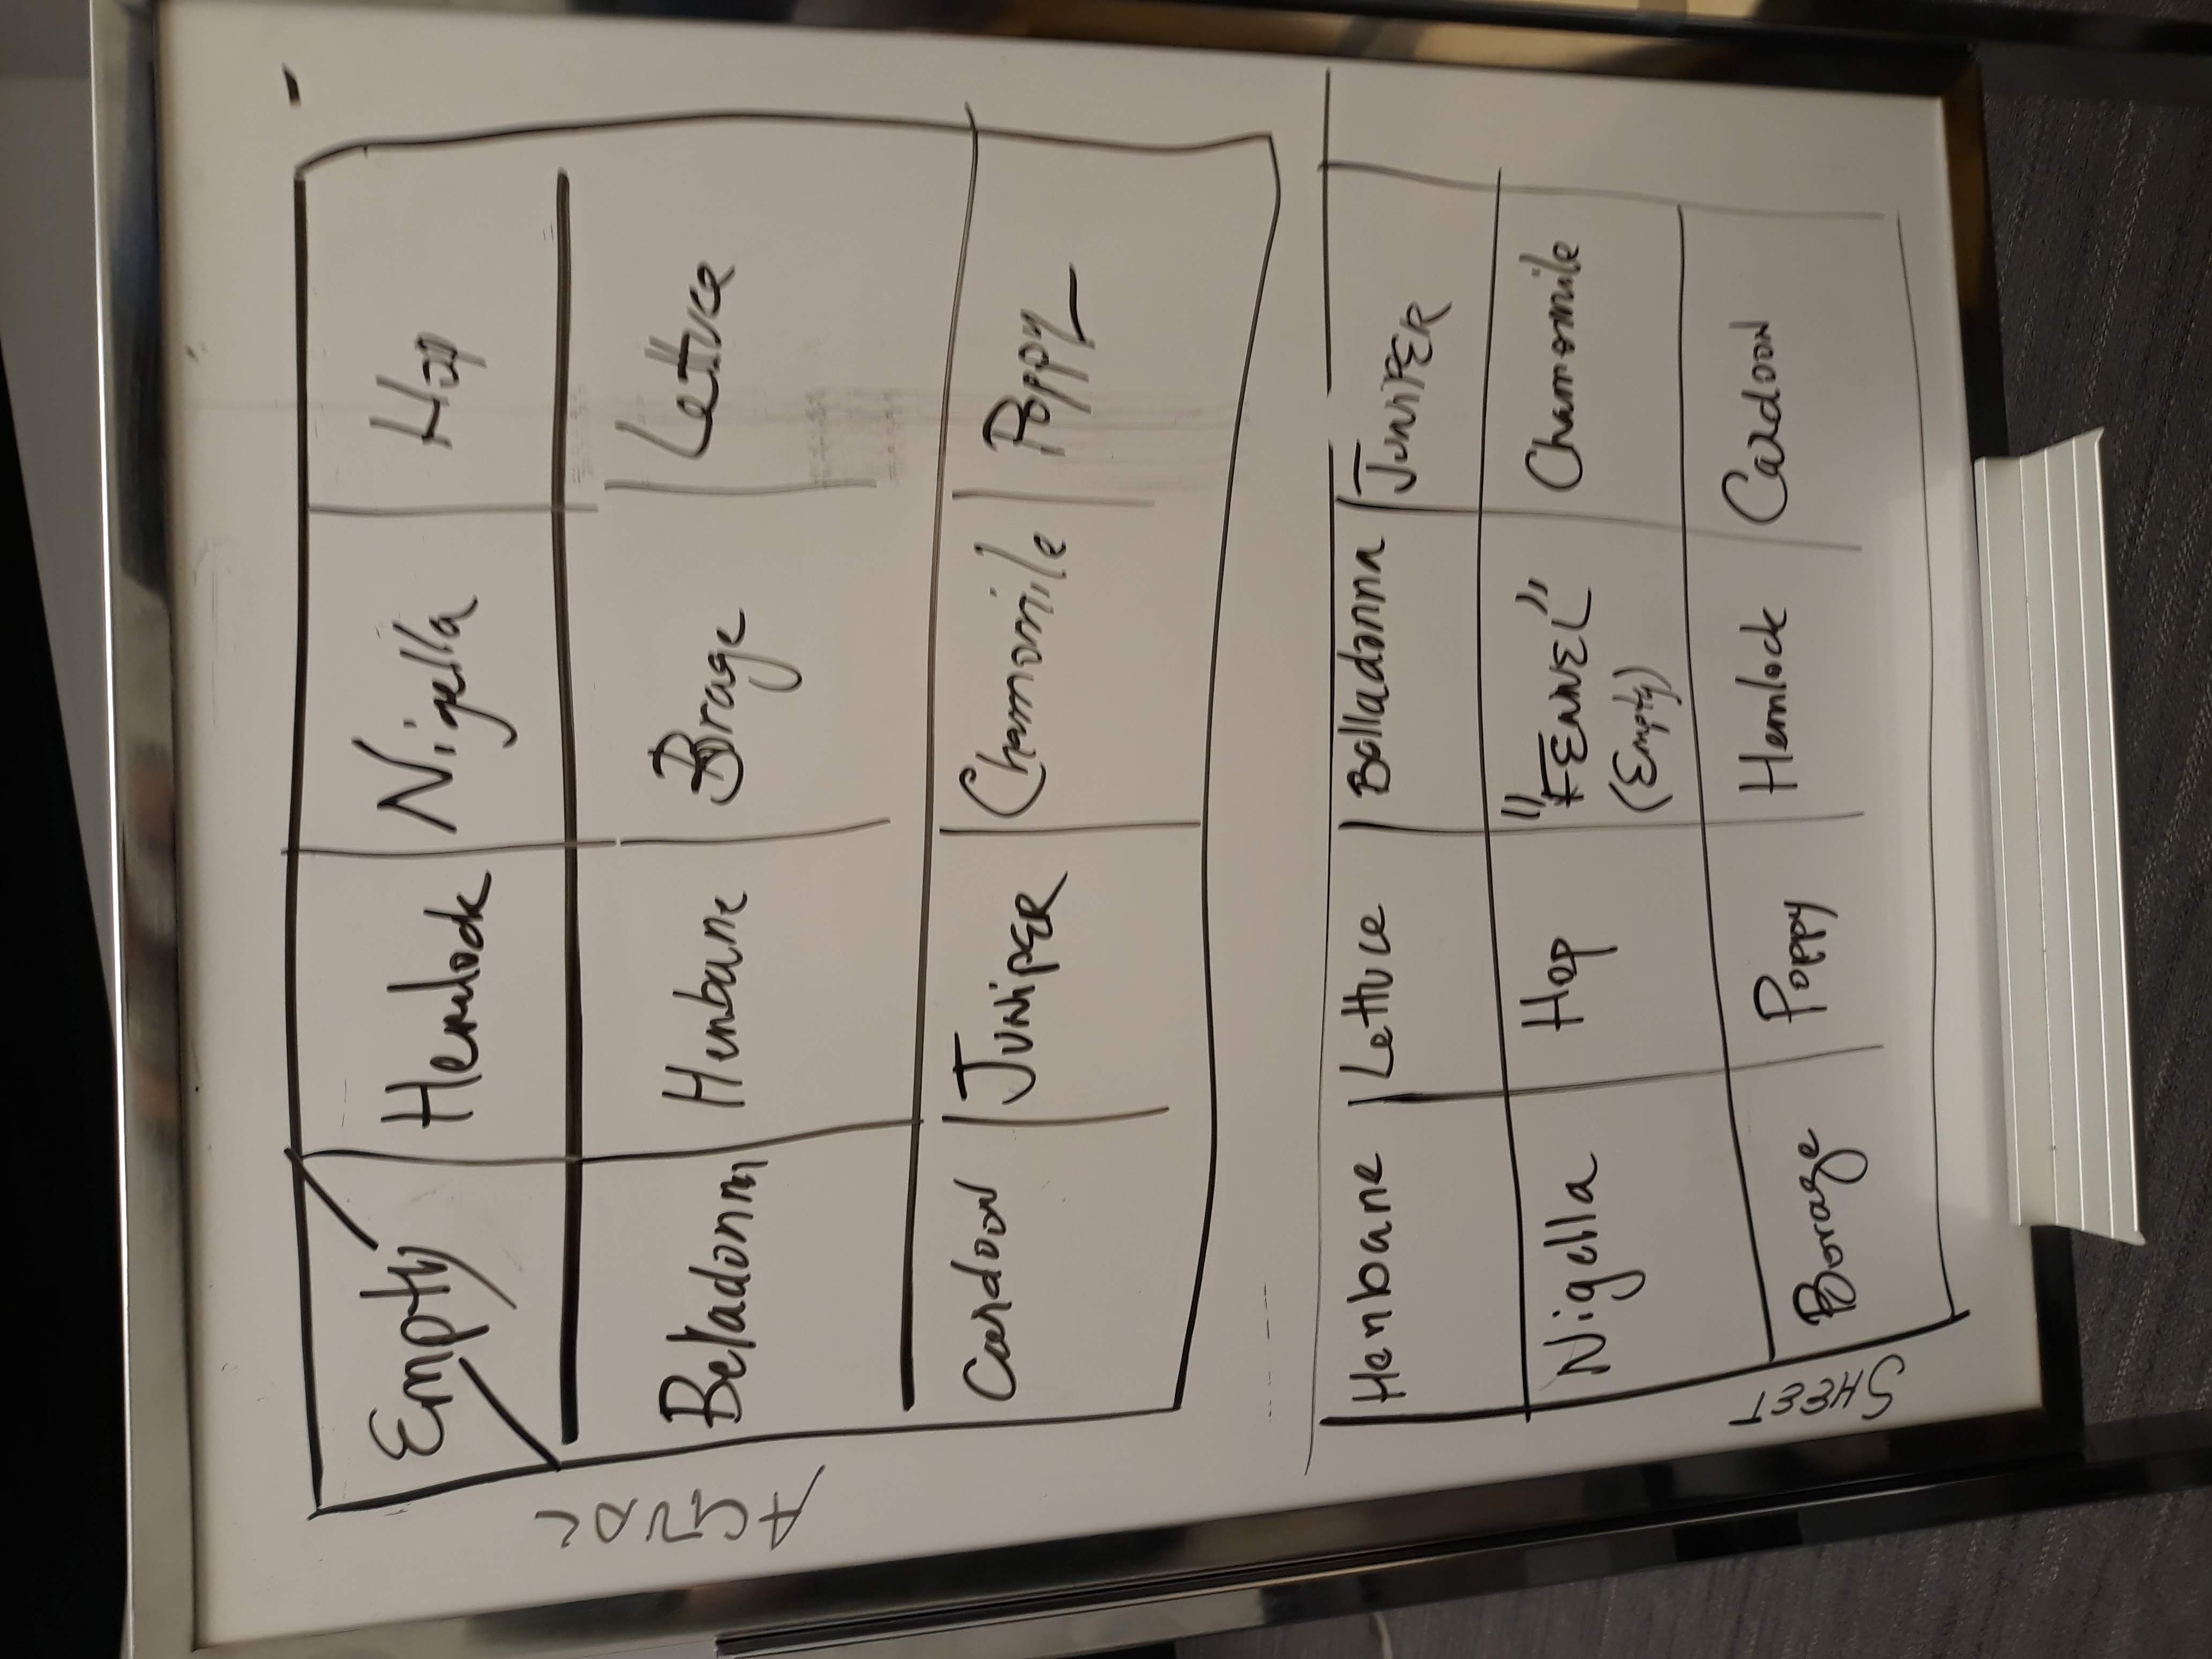 ACTUAL
Empty Hemlock Nigella Hop
Beladonna Henbane Borage Lettuce
Cardoon JUNIPER Chamomile Poppy
SHEET
Henbane Lettuce Belladonna JUNIPER
Nigella Hop "FENNEL" Chamomile
(Empty)
Borage Poppy Hemlock Cardoon